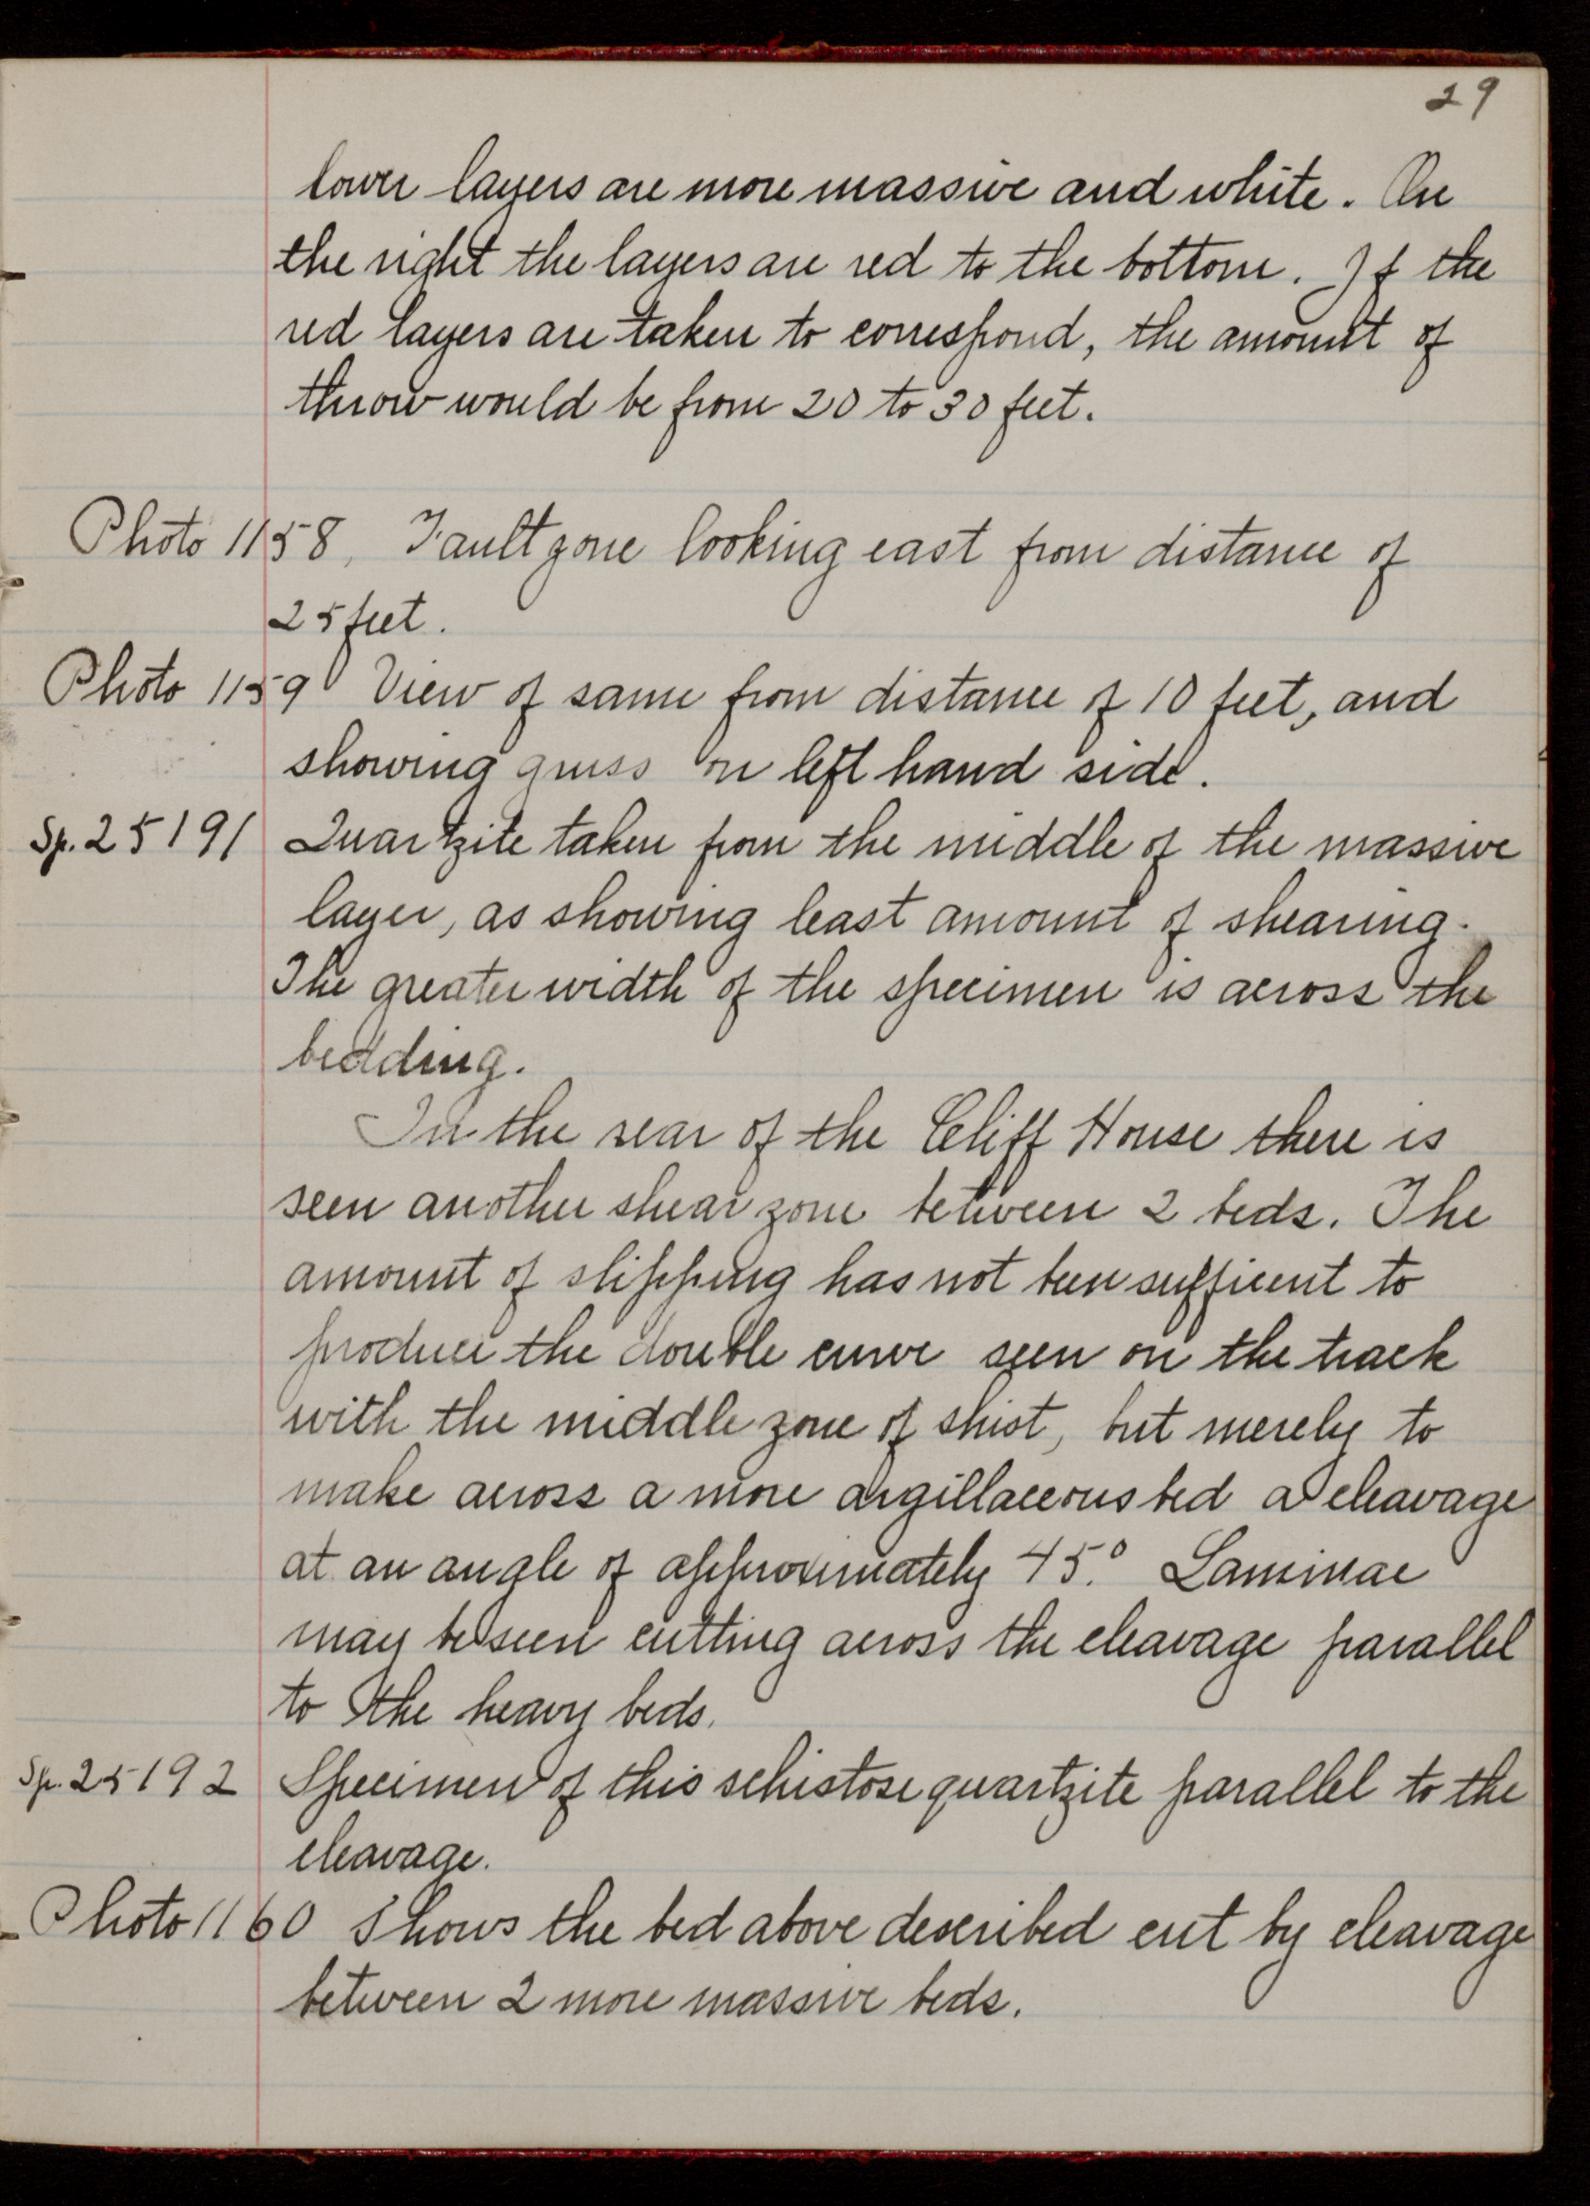 29
lower layers are more massive and white. On
the right the layers are red to the bottom. If the
red layers are taken to correspond, the amount of
throw would be from 20 to 30 feet.
Photo 1158, Fault zone looking east from distance of
25 feet.
Photo 1159 View of same from distance of 10 feet, and
showing gniss on left hand side.
Sp. 25191 Quartzite taken from the middle of the massive
layer, as showing least amount of shearing.
The greater width of the specimen is across the
bedding.
In the rear of the Cliff House there is
seen another shear zone between 2 beds. The
amount of slipping has not been sufficent to
produce the double curve seen on the track
with the middle zone of shist, but merely to
make across a more argillaceous bed a cleavage
at an angle of approximately 45.° Laminae
may be seen cutting across the cleavage parallel
to the heavy beds.
Sp. 25192 Specimen of this schistose quartzite parallel to the
cleavage.
Photo 1160 Shows the bed above described cut by cleavage
between 2 more massive beds.